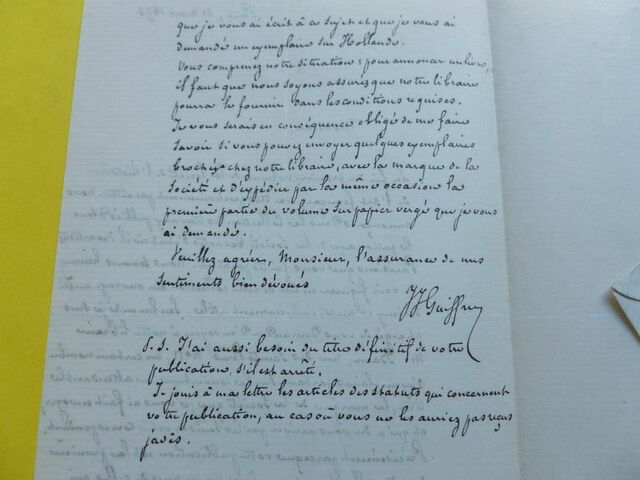 que je vous ai écrit à ce sujet et que je vous ai
demandé un exemplaire sur Hollande.
Vous comprenez notre situation : pour annoncer un livre,
il faut que nous soyons assurés que notre libraire
pourra le fournir dans les conditions requises.
Je vous serais en conséquence obligé de me faire
savoir si vous pouvez envoyer quelques exemplaires
brochés chez notre libraire, avec la marque de la
Société et d'expédier par la même occasion la
première partie du volume sur papier vergé que je vous
ai demandé.
Veuillez agréer, Monsieur, l'assurance de mes
sentiments bien dévoués
JJ Guiffrey
P. S. J'ai aussi besoin du titre définitif de votre
publication, s'il est arrêté.
Je joins à ma lettre les articles des statuts qui concernent
votre publication, au cas où vous ne les auriez pas reçus
jadis.